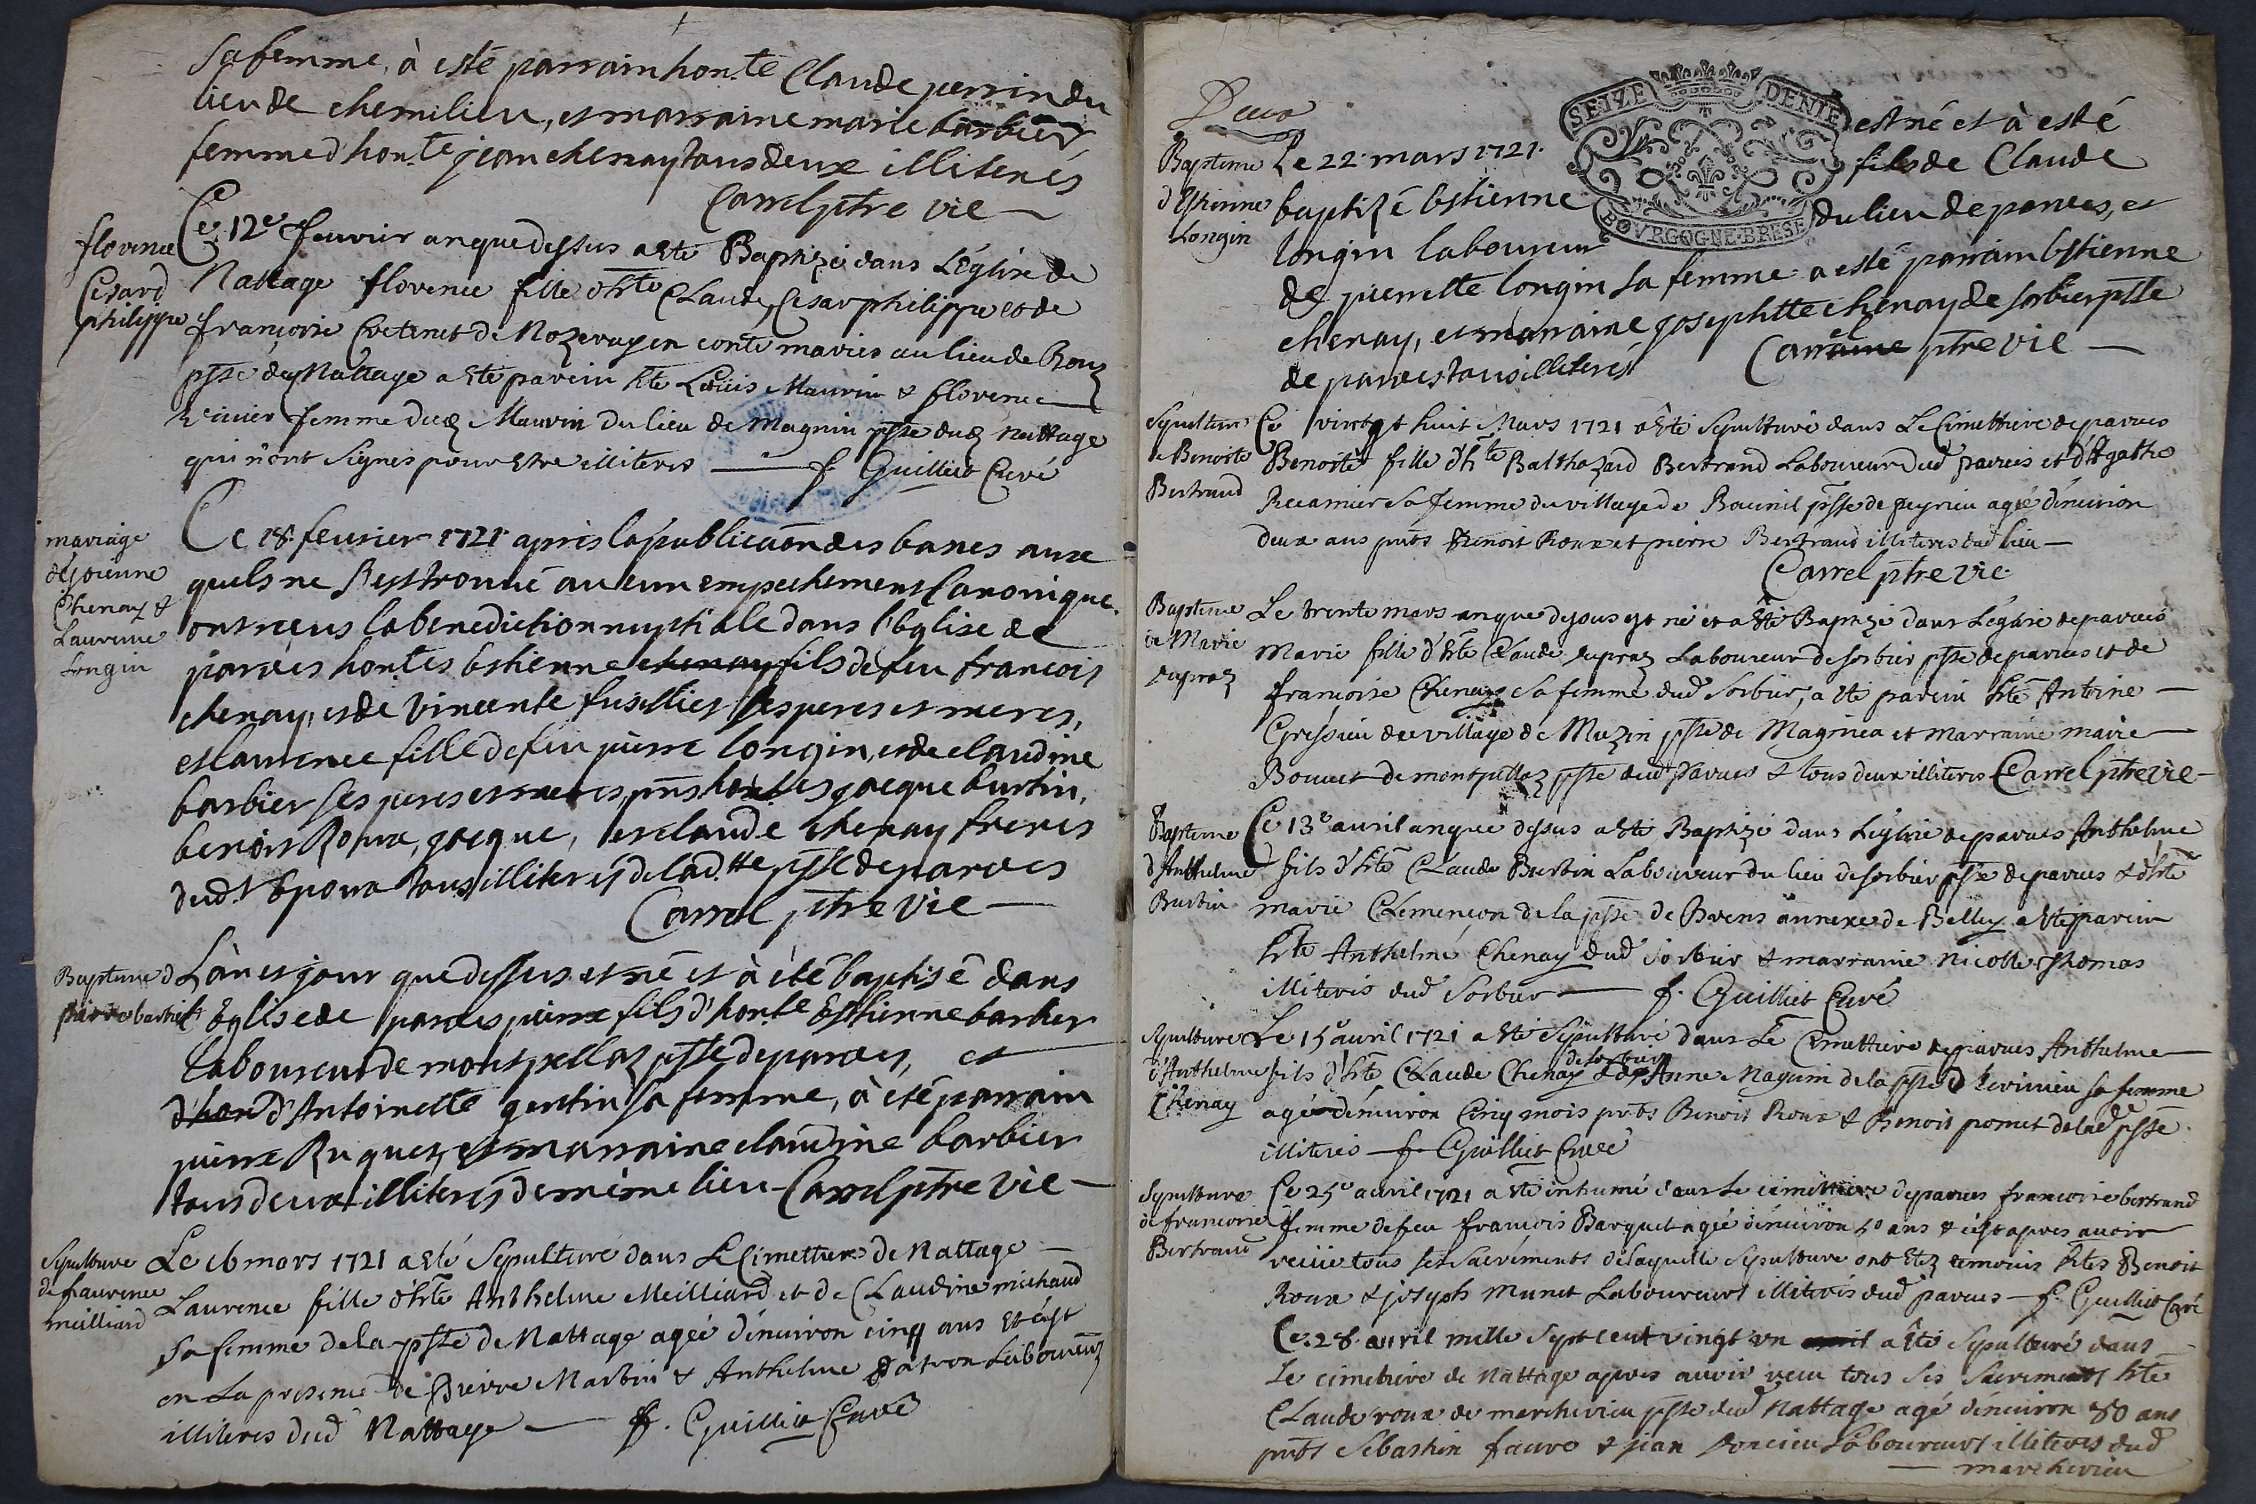 sa femme, à esté parrain hon.te Claude perrin du
lieu de chemilieu, et marraine marie barbier
femme d'hon.te jean chenay tous deux illiterés
Carrel ptre vic
florence
Cesard
philippe
Ce 12e feuvrier an que dessus a Eté Baptizé dans L'Eglise de
Nattage florence fille d'hte Claude Cesar philippe et de
françoise Cretenet de Nozeroy en conté mariés au lieu de
psse de Nattage a Eté parein hte Loüis Maurin & florence
femme dud Maurin du lieu de Magnin psse dud Nattage
qui n'ont signés pour Estre illiteres f. Guilliet Curé
mariage
d'Estienne
Chenay &
Laurence
Longin
Ce 18 feurier 1721 apris la publication des bancs aux
quels ne s'est trouué aucun empechement Canonique
ont reçus la benediction nuptiale dans l'Eglise de
parues hontes Estienne chenay fils de feu francois
chenay, et de Vincente fusillier ses peres et meres,
et laurence fille de feu pierre longin, et de claudine
barbier ses peres et meres, pnts hontes jacque burtin,
benoit Roux, jacque, et claude chenay freres
dud.t Epoux tous illiterés de lad.tte psse de parues
Carrel ptre vic
Bapteme d
pierre barbier
L'an et jour que dessus est né et à été baptisé dans
l'Eglise de parues pierre fils d'hon.te Esthienne barbier
laboureur de montpellaz psse de parues, et
d'hon d'Antoinette gentin sa femme, à été parrain
pierre Ruquet, et marraine claudine barbier
tous deux illiterés de même lieu Carrel ptre vic
Sepulture
de Laurence
meilliard
Le 16 mars 1721 a esté sepulturé dans Le Cimettiere de Nattage
Laurence fille d'hte Anthelme Meilliard et de Claudine michaud
sa femme de la psse de Nattage agée d'enuiron cinq ans Et c'est
en La presence de Pierre Martin & Anthelme patron Laboureurs
illiteres dud Nattage f. Guilliet Curé
Deux
SEIZE DENIE
BOVRGOGNE·BRESE
Bapteme
d'Estienne
Longin
Le 22 mars 1721 est né et à esté
baptizé Estienne fils de Claude
longin laboureur du lieu de parues, et
de pierrette longin sa femme a esté parrain Estienne
chenay, et marraine josephtte chenay de sorbier psse
de parues tous illiterés Carrel ptre vic
Sepulture
de Benoite
Bertrand
Ce vingt huit Mars 1721 a Eté Sepulturé dans Le Cimettiere de parues
Benoite fille d'hte Balthazard Bertrand Laboureur dud parues et d'Agathe
Recamier sa femme du village de psse de peyrieu agée d'enuiron
deux ans pnts Benoit Roux et pierre Bertrand illiteres dud lieu
Carrel ptre vic
Bapteme
de Marie
dupraz
Le trente mars an que dessus est né et a été Baptizé dans L'eglise de parues
Marie fille d'hte Claude dupraz Laboureur de sorbier psse de parues et de
francoise Chenay sa femme dud sorbier, a Eté parein hte Antoine
du village de Muzin psse de Magnieu et marraine marie
Bouuet de montpellaz psse dud parues & tous deux illiteres Carrel ptre vic
Bapteme
d'Anthelme
Burtin
Ce 13e avril an que dessus a Eté Baptizé dans L'eglise de parues Anthelme
fils d'hte Claude Burtin Laboureur du lieu de sorbier psse de parues & d'hte
marie Clemençon de la psse de Brens annexe de Belley a Eté parein
hte Anthelme Chenay dud sorbier & marraine Nicolle Thomas
illiteres dud sorbier f. Guilliet Curé
Sepulture
d'Anthelme
Chenay
Le 15 avril 1721 a Eté Sepulturé dans Le Cimettiere de parues Anthelme
fils d'hte Claude Chenay de sorbier & d'Anne Magnin de la psse d sa femme
agé d'enuiron Cinq mois pnts Benoit Roux & Benoit pomet de lade psse
illiteres f. Guilliet Curé
Sepulture
de francoise
Bertrand
Ce 25e avril 1721 a Eté inhumé dans Le cimettiere de parues francoise bertrand
femme de feu francois Barquet agée d'enuiron 50 ans & c'est apres auoir
receüe tous ses sacrements de laquelle sepulture ont Etez temoins htes Benoit
Roux & joseph Munet Laboureurs illiteres dud parues f. Guilliet Curé
Ce 28 avril mille sept cent vingt vn avril a Eté Sepulturé dans
Le cimetiere de Nattage apres auoir receu tous ses sacrements hte
Claude roux de marchevieu psse dud Nattage agé d'enuiron 80 ans
pnts Sebastien faure & jean Laboureurs illiteres dud
marchevieu